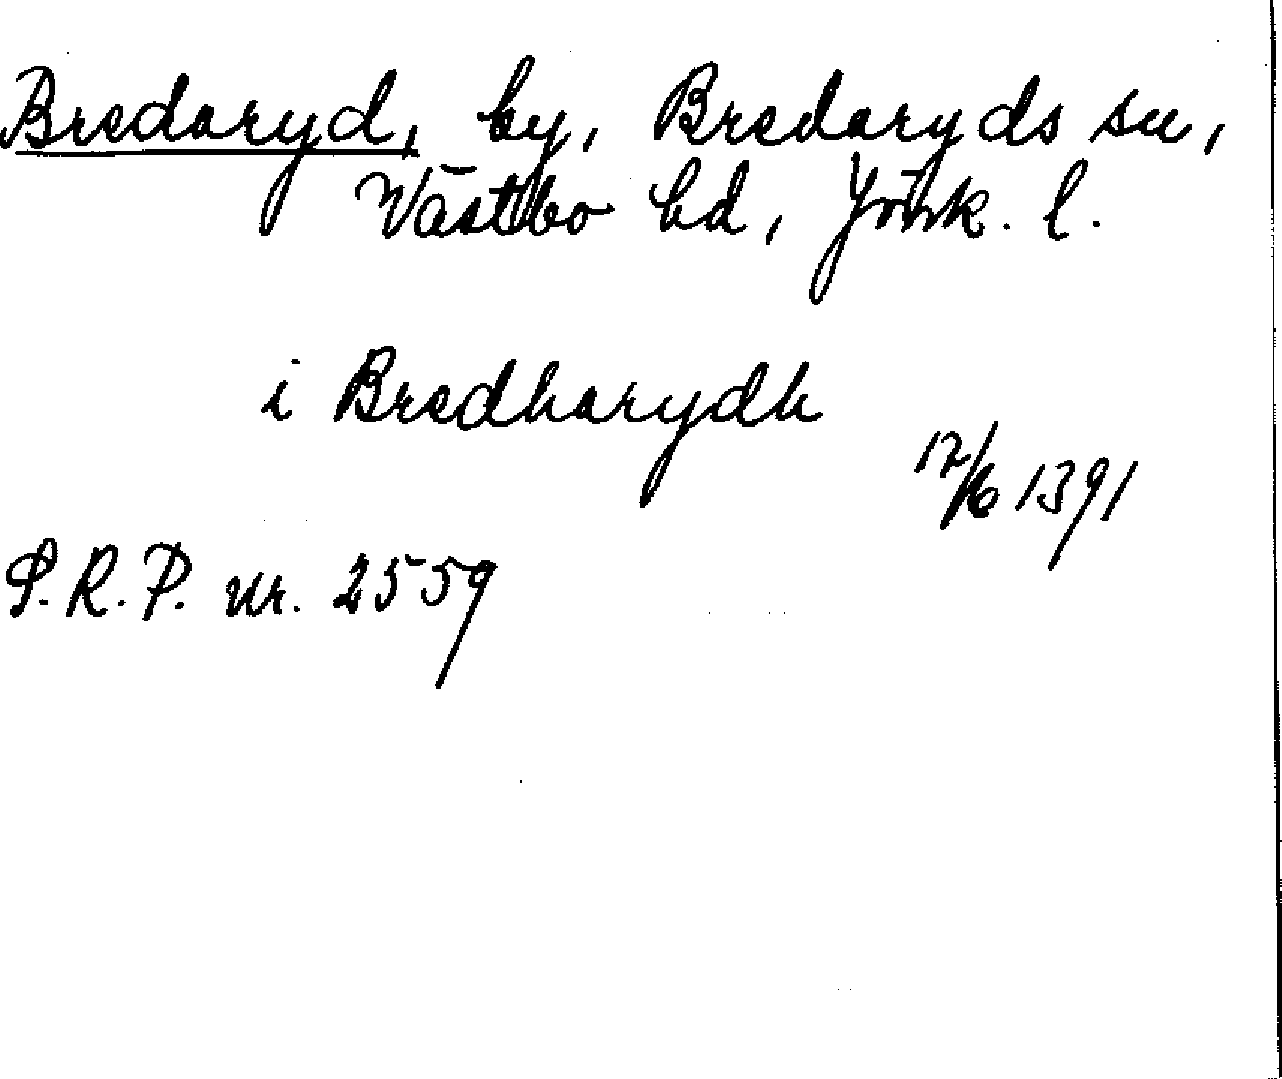 Bredaryd, by, Bredaryds sn,
Västbo hd, Jönk. l.
i Bredharydh
12/6 1391
S.R.P. nr. 2559